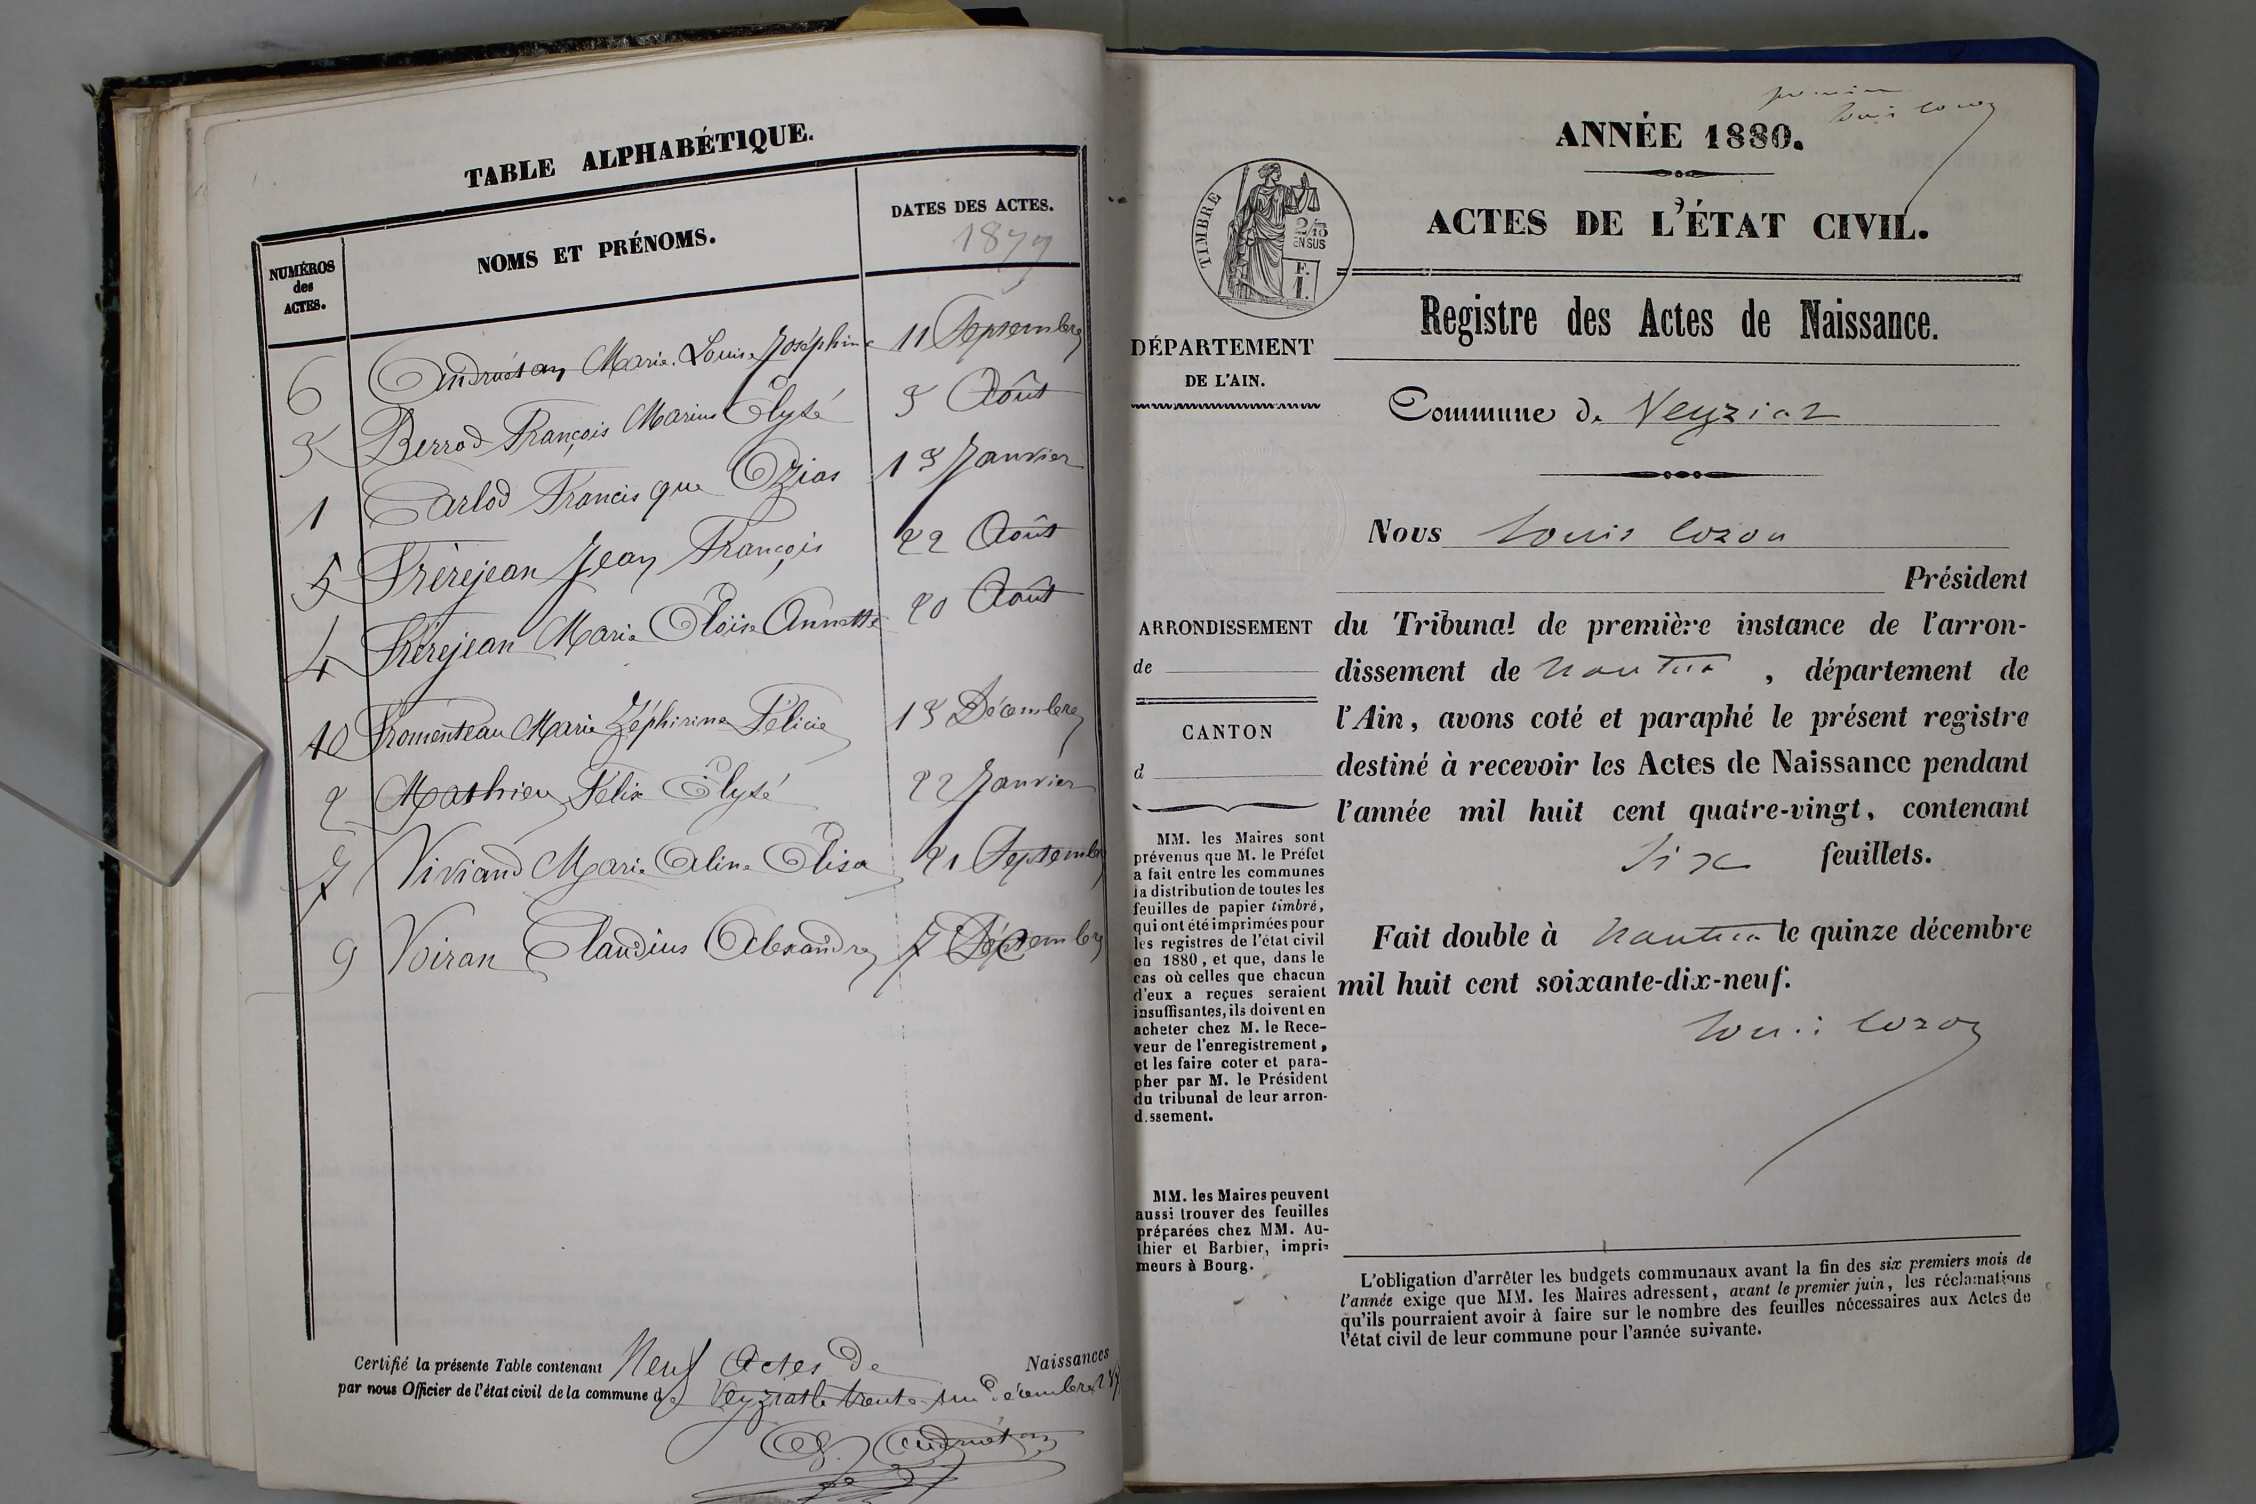 TABLE ALPHABÉTIQUE.
NUMÉROS
des
ACTES.
NOMS ET PRÉNOMS.
DATES DES ACTES.
1879
6 Andruétan Marie Louise Joséphine 11 Septembre
3 Berrod François Marius Elysé 3 Août
1 Carlod Francisque Ozias 13 Janvier
5 Frèrejean Jean François 22 Août
4 Frèrejean Marie Eloïse Annette 20 Août
10 Fromenteau Marie Zéphirine Félicie 13 Décembre
2 Mathieu Félix Elysé 22 Janvier
7 Viviand Marie Aline Elisa 21 Septembre
9 Voiran Claudius Alexandre 7 Décembre
Certifié la présente Table contenant Neuf Actes de Naissances
par nous Officier de l'état civil de la commune de Veyziat le trente un Décembre
Andruétan
premier
Louis Cozon
ANNÉE 1880.
ACTES DE L'ÉTAT CIVIL.
TIMBRE
2/10
EN SUS
F.
1.
Registre des Actes de Naissance.
DÉPARTEMENT
DE L'AIN.
Commune de Veyziat
Nous Louis Cozon
Président
ARRONDISSEMENT
de
CANTON
d
du Tribunal de première instance de l'arron-
dissement de Nantua, département de
l'Ain, avons coté et paraphé le présent registre
destiné à recevoir les Actes de Naissance pendant
l'année mil huit cent quatre-vingt, contenant
Six feuillets.
Fait double à Nantua le quinze décembre
mil huit cent soixante-dix-neuf.
Louis Cozon
MM. les Maires sont
prévenus que M. le Préfet
a fait entre les communes
la distribution de toutes les
feuilles de papier timbré,
qui ont été imprimées pour
les registres de l'état civil
en 1880, et que, dans le
cas où celles que chacun
d'eux a reçues seraient
insuffisantes, ils doivent en
acheter chez M. le Rece-
veur de l'enregistrement,
et les faire coter et para-
pher par M. le Président
du tribunal de leur arron-
dissement.
MM. les Maires peuvent
aussi trouver des feuilles
préparées chez MM. Au-
thier et Barbier, impri-
meurs à Bourg.
L'obligation d'arrêter les budgets communaux avant la fin des six premiers mois de
l'année exige que MM. les Maires adressent, avant le premier juin, les réclamations
qu'ils pourraient avoir à faire sur le nombre des feuilles nécessaires aux Actes de
l'état civil de leur commune pour l'année suivante.